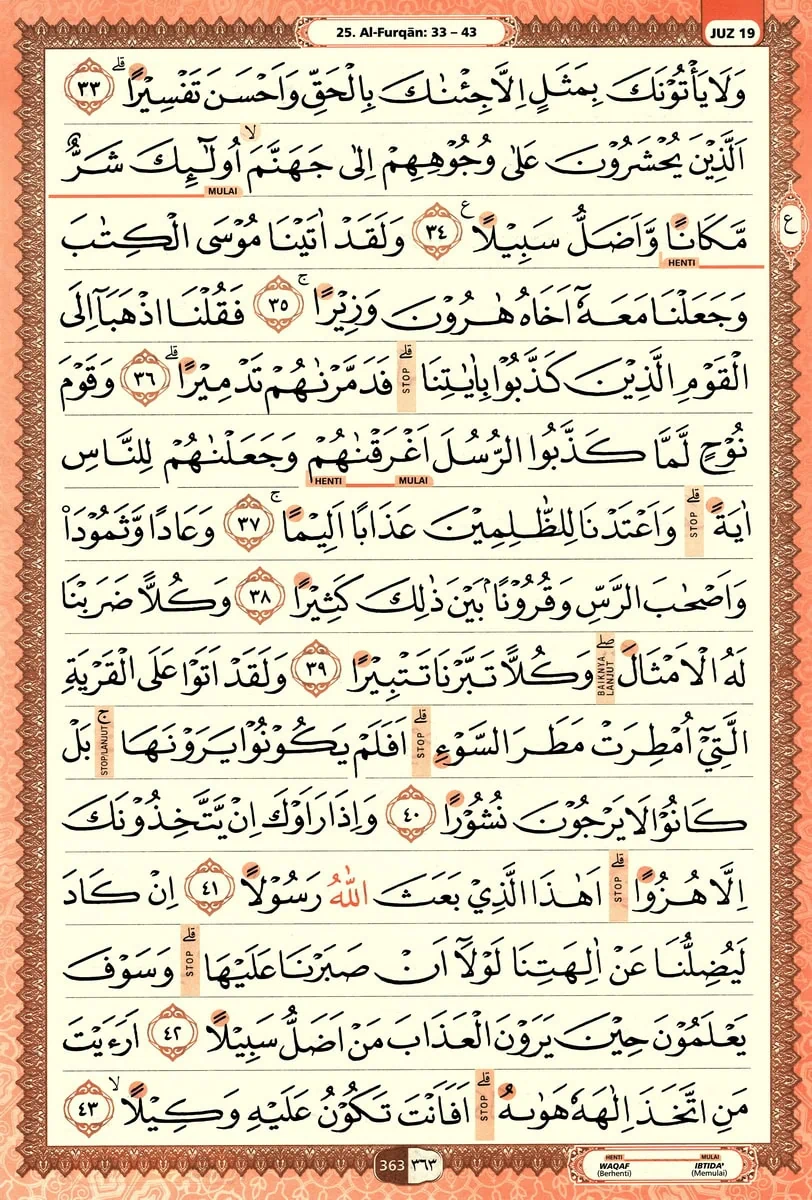 25. Al-Furqān: 33 – 43
JUZ 19
وَلَا يَأْتُوْنَكَ بِمَثَلٍ اِلَّا جِئْنٰكَ بِالْحَقِّ وَاَحْسَنَ تَفْسِيْرًا ۗ ٣٣
اَلَّذِيْنَ يُحْشَرُوْنَ عَلٰى وُجُوْهِهِمْ اِلٰى جَهَنَّمَ ۙ اُولٰۤىِٕكَ شَرٌّ
MULAI
مَّكَانًا وَّاَضَلُّ سَبِيْلًا ࣖ ٣٤ وَلَقَدْ اٰتَيْنَا مُوْسَى الْكِتٰبَ
ع
HENTI
وَجَعَلْنَا مَعَهٗٓ اَخَاهُ هٰرُوْنَ وَزِيْرًا ۚ ٣٥ فَقُلْنَا اذْهَبَآ اِلَى
الْقَوْمِ الَّذِيْنَ كَذَّبُوْا بِاٰيٰتِنَا ۗ STOP فَدَمَّرْنٰهُمْ تَدْمِيْرًا ۗ ٣٦ وَقَوْمَ
نُوْحٍ لَّمَّا كَذَّبُوا الرُّسُلَ اَغْرَقْنٰهُمْ وَجَعَلْنٰهُمْ لِلنَّاسِ
HENTI MULAI
اٰيَةً ۗ STOP وَاَعْتَدْنَا لِلظّٰلِمِيْنَ عَذَابًا اَلِيْمًا ۚ ٣٧ وَعَادًا وَّثَمُوْدَا۟
وَاَصْحٰبَ الرَّسِّ وَقُرُوْنًاۢ بَيْنَ ذٰلِكَ كَثِيْرًا ٣٨ وَكُلًّا ضَرَبْنَا
لَهُ الْاَمْثَالَ ۖ BAIKNYA LANJUT وَكُلًّا تَبَّرْنَا تَتْبِيْرًا ٣٩ وَلَقَدْ اَتَوْا عَلَى الْقَرْيَةِ
الَّتِيْٓ اُمْطِرَتْ مَطَرَ السَّوْءِ ۗ STOP اَفَلَمْ يَكُوْنُوْا يَرَوْنَهَا ۚ STOP/LANJUT بَلْ
كَانُوْا لَا يَرْجُوْنَ نُشُوْرًا ٤٠ وَاِذَا رَاَوْكَ اِنْ يَّتَّخِذُوْنَكَ
اِلَّا هُزُوًا ۗ STOP اَهٰذَا الَّذِيْ بَعَثَ اللّٰهُ رَسُوْلًا ٤١ اِنْ كَادَ
لَيُضِلُّنَا عَنْ اٰلِهَتِنَا لَوْلَآ اَنْ صَبَرْنَا عَلَيْهَا ۗ STOP وَسَوْفَ
يَعْلَمُوْنَ حِيْنَ يَرَوْنَ الْعَذَابَ مَنْ اَضَلُّ سَبِيْلًا ٤٢ اَرَءَيْتَ
مَنِ اتَّخَذَ اِلٰهَهٗ هَوٰىهُ ۗ STOP اَفَاَنْتَ تَكُوْنُ عَلَيْهِ وَكِيْلًا ۙ ٤٣
363 ٣٦٣
HENTI MULAI
WAQAF IBTIDA'
(Berhenti) (Memulai)